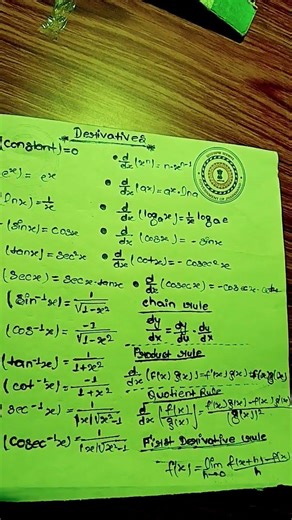 Derivatives
(constant)=0
• d/dx (xⁿ) = n·xⁿ⁻¹
eˣ) = eˣ
• d/dx (aˣ) = aˣ·lna
(lnx) = 1/x
• d/dx (logₐx) = 1/x logₐe
(sinx) = cosx
• d/dx (cosx) = - sinx
(tanx) = sec²x
• d/dx (cotx) = - cosec²x
(secx) = secx·tanx
• d/dx (cosecx) = -cosecx·cotx
(sin⁻¹x) = 1/√1-x²
chain rule
dy/dx = dy/du · du/dx
(cos⁻¹x) = -1/√1-x²
Product rule
(tan⁻¹x) = 1/1+x²
d/dx (f(x) g(x)) = f'(x) g(x) + f(x) g'(x)
(cot⁻¹x) = -1/1+x²
Quotient Rule
(sec⁻¹x) = 1/|x|√x²-1
d/dx [f(x)/g(x)] = f'(x) g(x) - f(x) g'(x)/(g(x))²
(cosec⁻¹x) = -1/|x|√x²-1
First Derivative rule
f'(x) = lim h→0 f(x+h) - f(x)/h